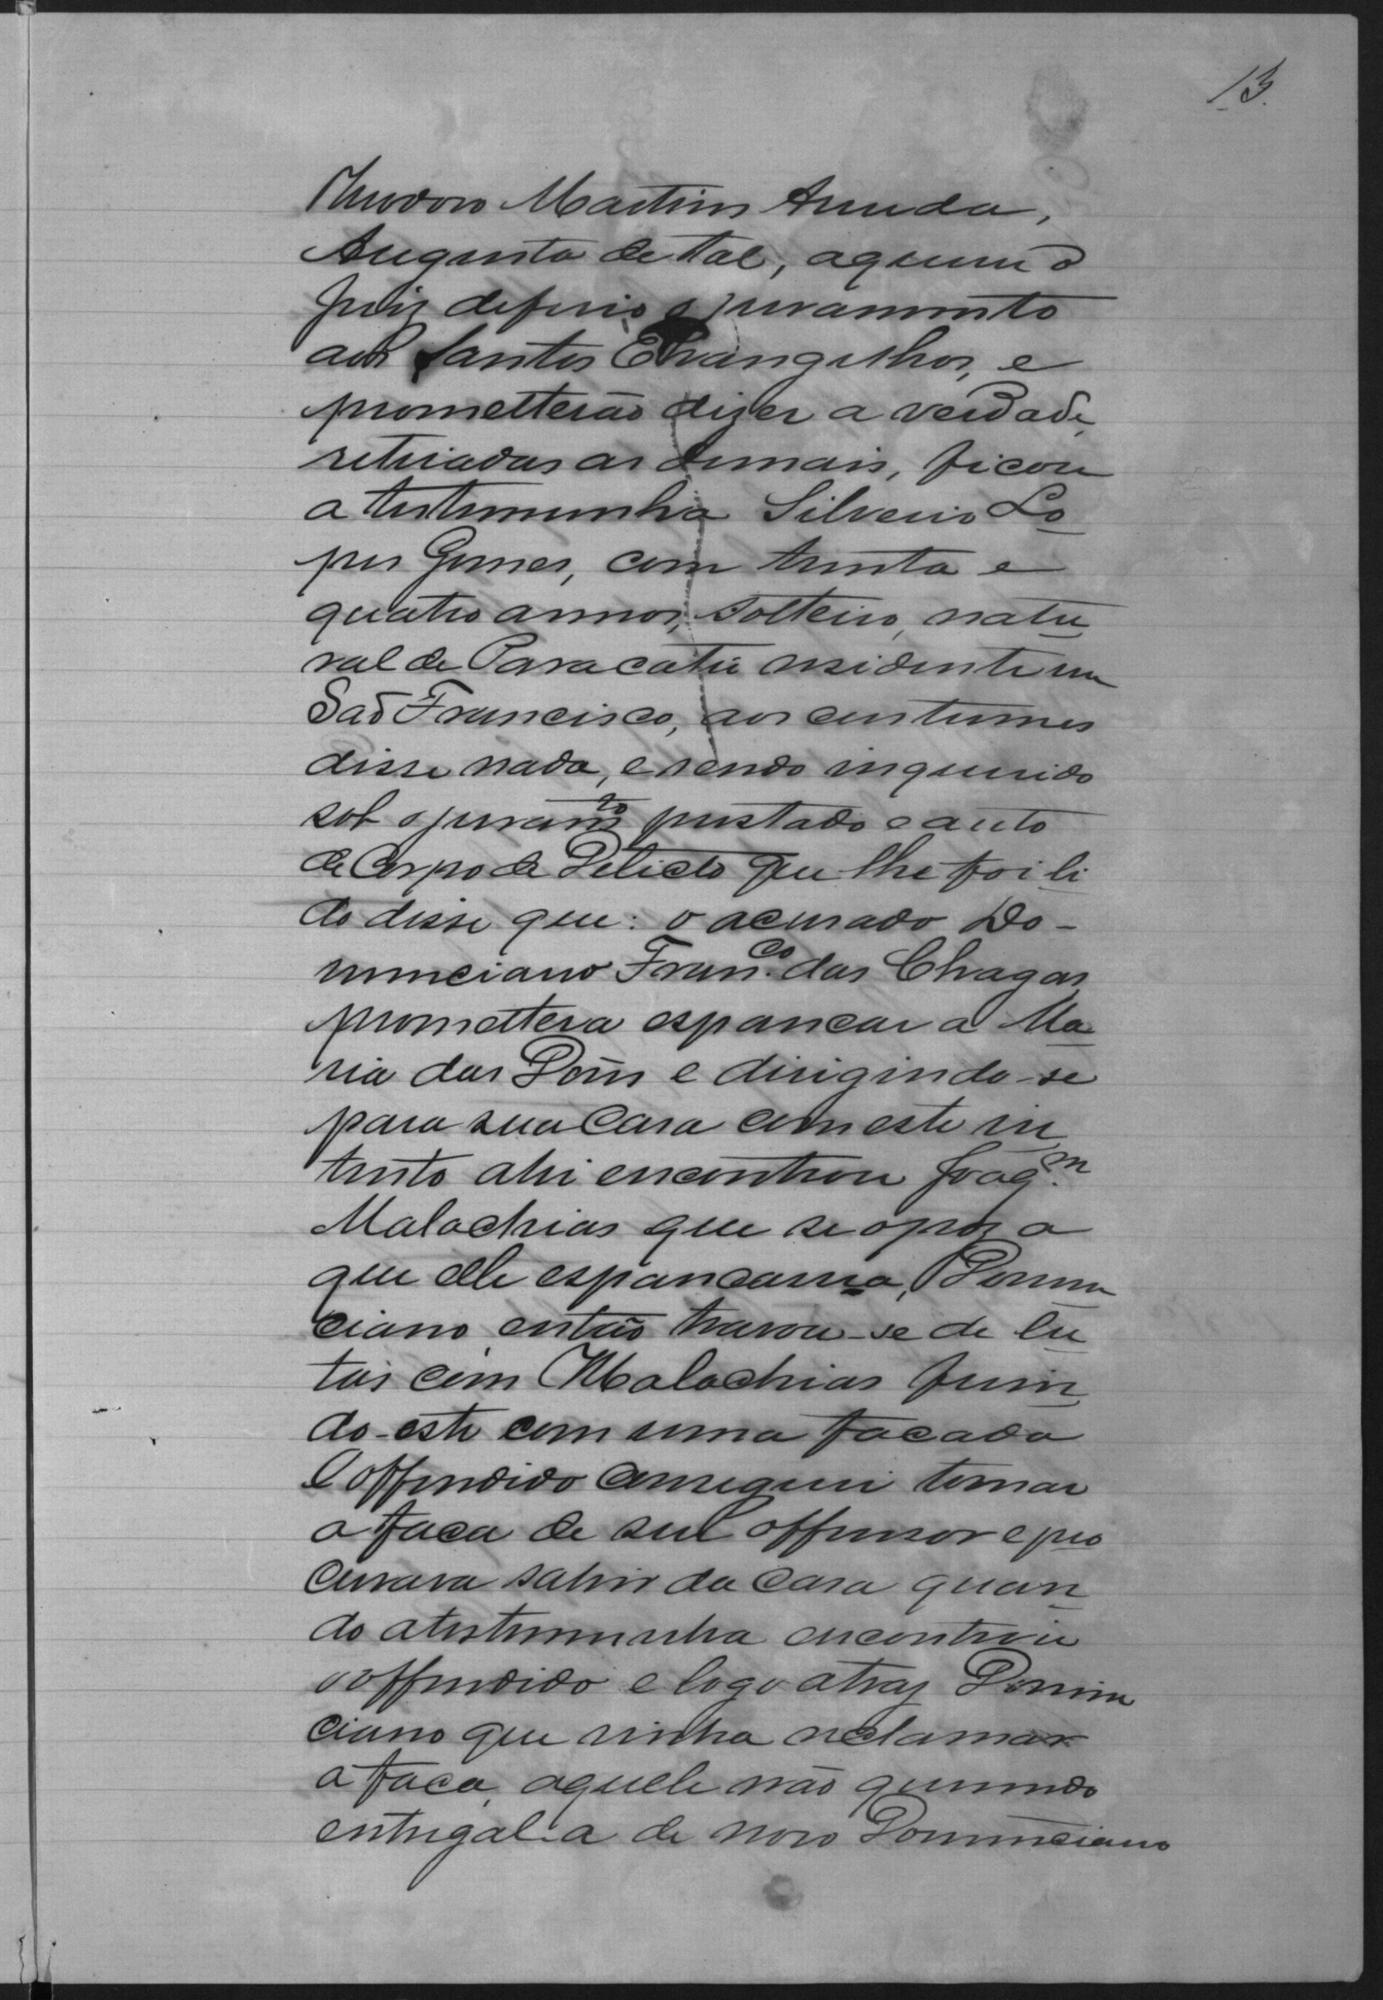 13.
Theodoro Martins Arruda,
Augusta de tal, aquem o
Juiz deferio o juramento
aos Santos Evangelhos, e
prometterão dizer a verdade,
retiradas as demais, ficou
a testemunha Silverio Lo
pes Gomes, com trinta e
quatro annos, solteiro, natu
ral de Paracatú residente em
São Francisco, aos custumes
disse nada, e sendo inquerido
sob o juramto prestado e auto
de Corpo de Delicto que lhe foi li
do disse que: o acusado Do-
minciano Franco. das Chagas
promettera espancar a Ma
ria das Dores e dirigindo-se
para sua casa com este in
tento ahi encontrou Joaqm.
Malachias que se opoz a
que elle espancasse-a, Domin
ciano então travou-se de lu
tas com Malachias ferin
do-este com uma facada
O offendido conseguiu tomar
a faca de seu offensor e pro
curava sahir da casa quan
do a testemunha encontrou
o offendido e logo atraz Domin
ciano que vinha reclamar
a faca, aquele não querendo
entregal-a de novo Dominciano